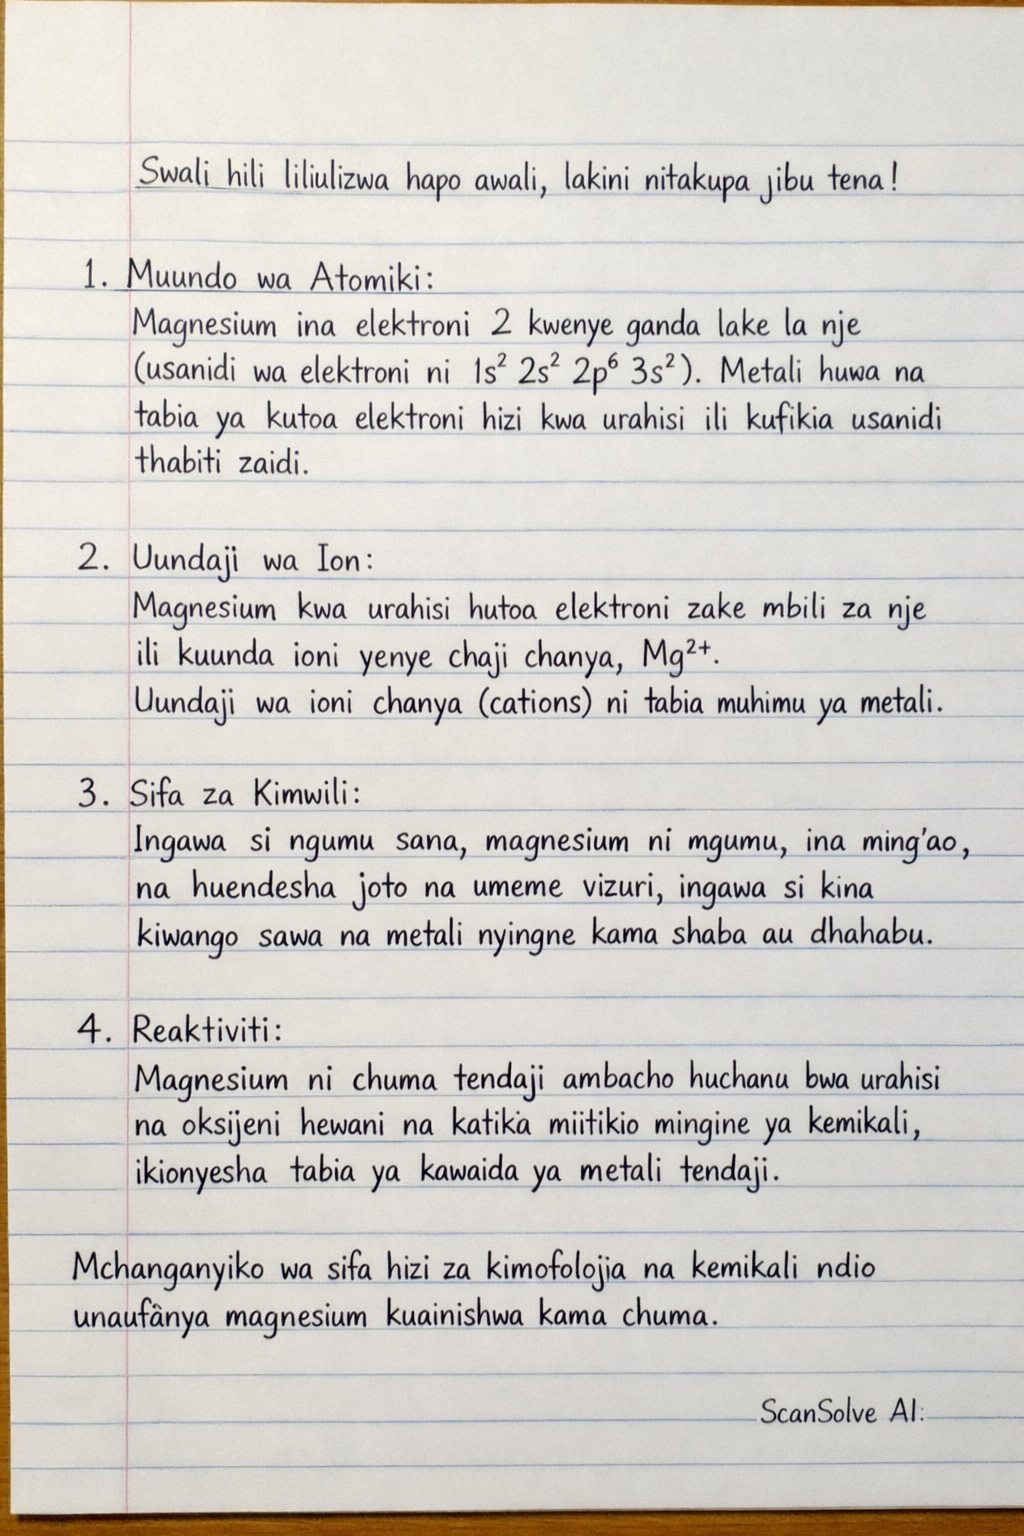 Swali hili liliulizwa hapo awali, lakini nitakupa jibu tena!
1. Muundo wa Atomiki:
Magnesium ina elektroni 2 kwenye ganda lake la nje
(usanidi wa elektroni ni 1s² 2s² 2p⁶ 3s²). Metali huwa na
tabia ya kutoa elektroni hizi kwa urahisi ili kufikia usanidi
thabiti zaidi.
2. Uundaji wa Ion:
Magnesium kwa urahisi hutoa elektroni zake mbili za nje
ili kuunda ioni yenye chaji chanya, Mg²⁺.
Uundaji wa ioni chanya (cations) ni tabia muhimu ya metali.
3. Sifa za Kimwili:
Ingawa si ngumu sana, magnesium ni mgumu, ina ming'ao,
na huendesha joto na umeme vizuri, ingawa si kina
kiwango sawa na metali nyingne kama shaba au dhahabu.
4. Reaktiviti:
Magnesium ni chuma tendaji ambacho huchanu bwa urahisi
na oksijeni hewani na katika miitikio mingine ya kemikali,
ikionyesha tabia ya kawaida ya metali tendaji.
Mchanganyiko wa sifa hizi za kimofolojia na kemikali ndio
unaufânya magnesium kuainishwa kama chuma.
ScanSolve AI: